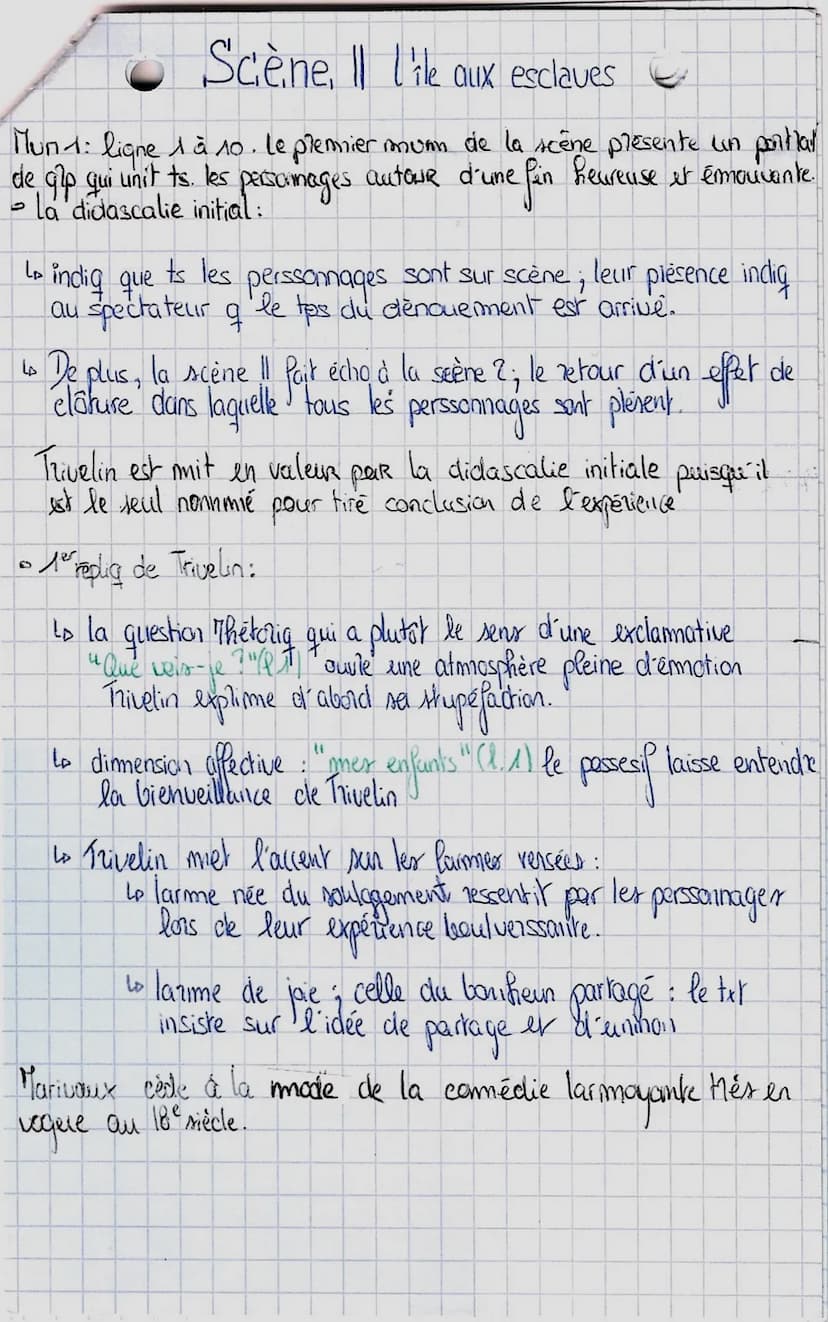 Scène 11 l'île aux esclaves
Mvm 1: ligne 1 à 10. Le premier mvm de la scène présente un portrait
de grp qui unit ts. les personnages autour d'une fin heureuse et émouvante.
- la didascalie initial :
↳ indiq que ts les perssonnages sont sur scène ; leur présence indiq
au spectateur q le tps du dénouement est arrivé.
↳ De plus, la scène 11 fait écho à la scène 2 ; le retour d'un effet de
clôture dans laquelle tous les perssonnages sont présent.
Trivelin est mit en valeur par la didascalie initiale puisqu'il
est le seul nommé pour tiré conclusion de l'expérience
• 1er répliq de Trivelin :
↳ la question rhétoriq qui a plutôt le sens d'une exclamative
"Que vois-je ?" (l.1) ouvre une atmosphère pleine d'émotion
Trivelin exprime d'abord sa stupéfaction.
↳ dimension affective : "mes enfants" (l.1) le possesif laisse entendre
la bienveillance de Trivelin
↳ Trivelin met l'accent sur les larmes versées :
↳ larme née du soulagement ressentit par les perssonnages
lors de leur expérience boulverssante.
↳ larme de joie ; celle du bonheur partagé : le txt
insiste sur l'idée de partage et d'union
Marivaux cède à la mode de la comédie larmoyante très en
vogue au 18e siècle.